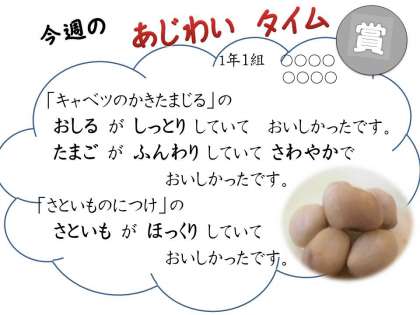 今週の あじわい タイム 賞
1年1組 ○○○○
○○○○
「キャベツのかきたまじる」の
おしる が しっとり していて おいしかったです。
たまご が ふんわり していて さわやかで
おいしかったです。
「さといものにつけ」の
さといも が ほっくり していて
おいしかったです。